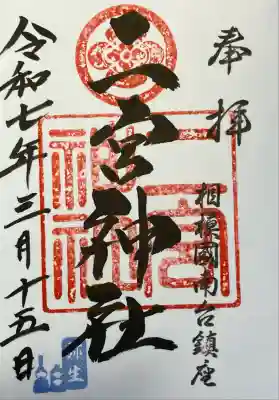 奉拝
相模國南台鎮座
二宮神社
令和七年三月十五日
弥生